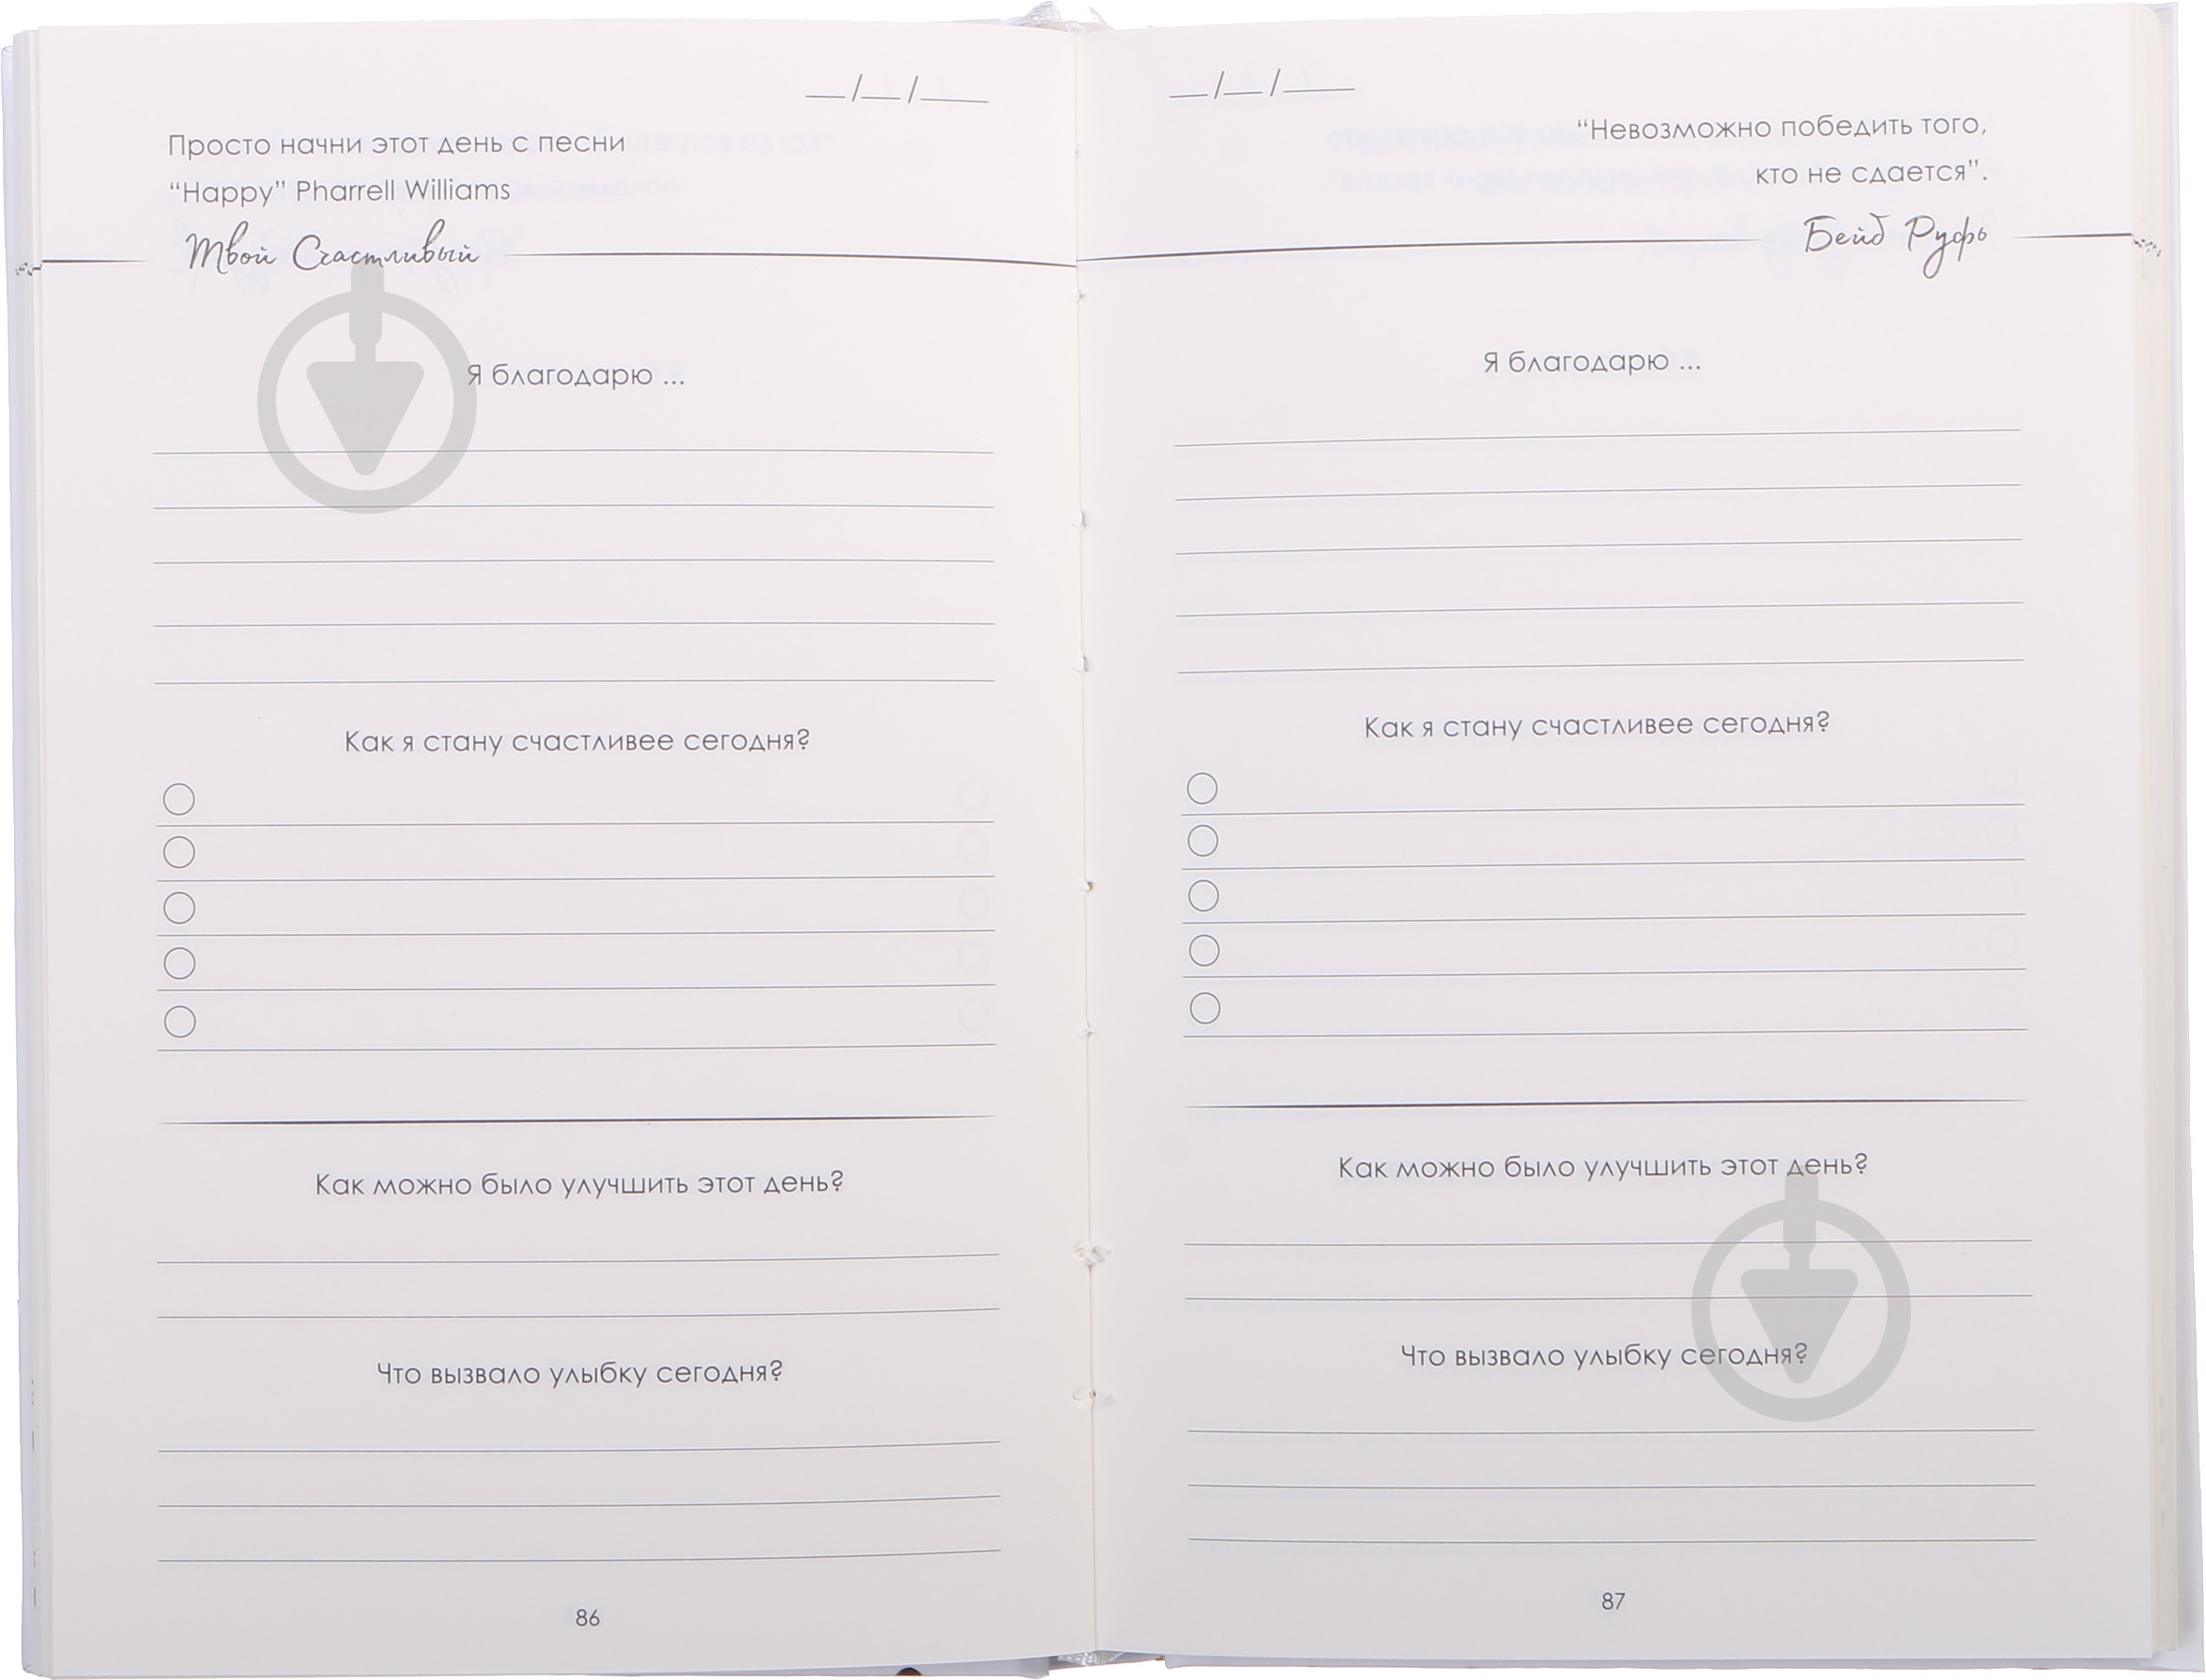 __/__/____
Просто начни этот день с песни
“Happy” Pharrell Williams
Твой Счастливый
Я благодарю ...
Как я стану счастливее сегодня?
Как можно было улучшить этот день?
Что вызвало улыбку сегодня?
86
__/__/____
“Невозможно победить того,
кто не сдается”.
Бейб Руфь
Я благодарю ...
Как я стану счастливее сегодня?
Как можно было улучшить этот день?
Что вызвало улыбку сегодня?
87